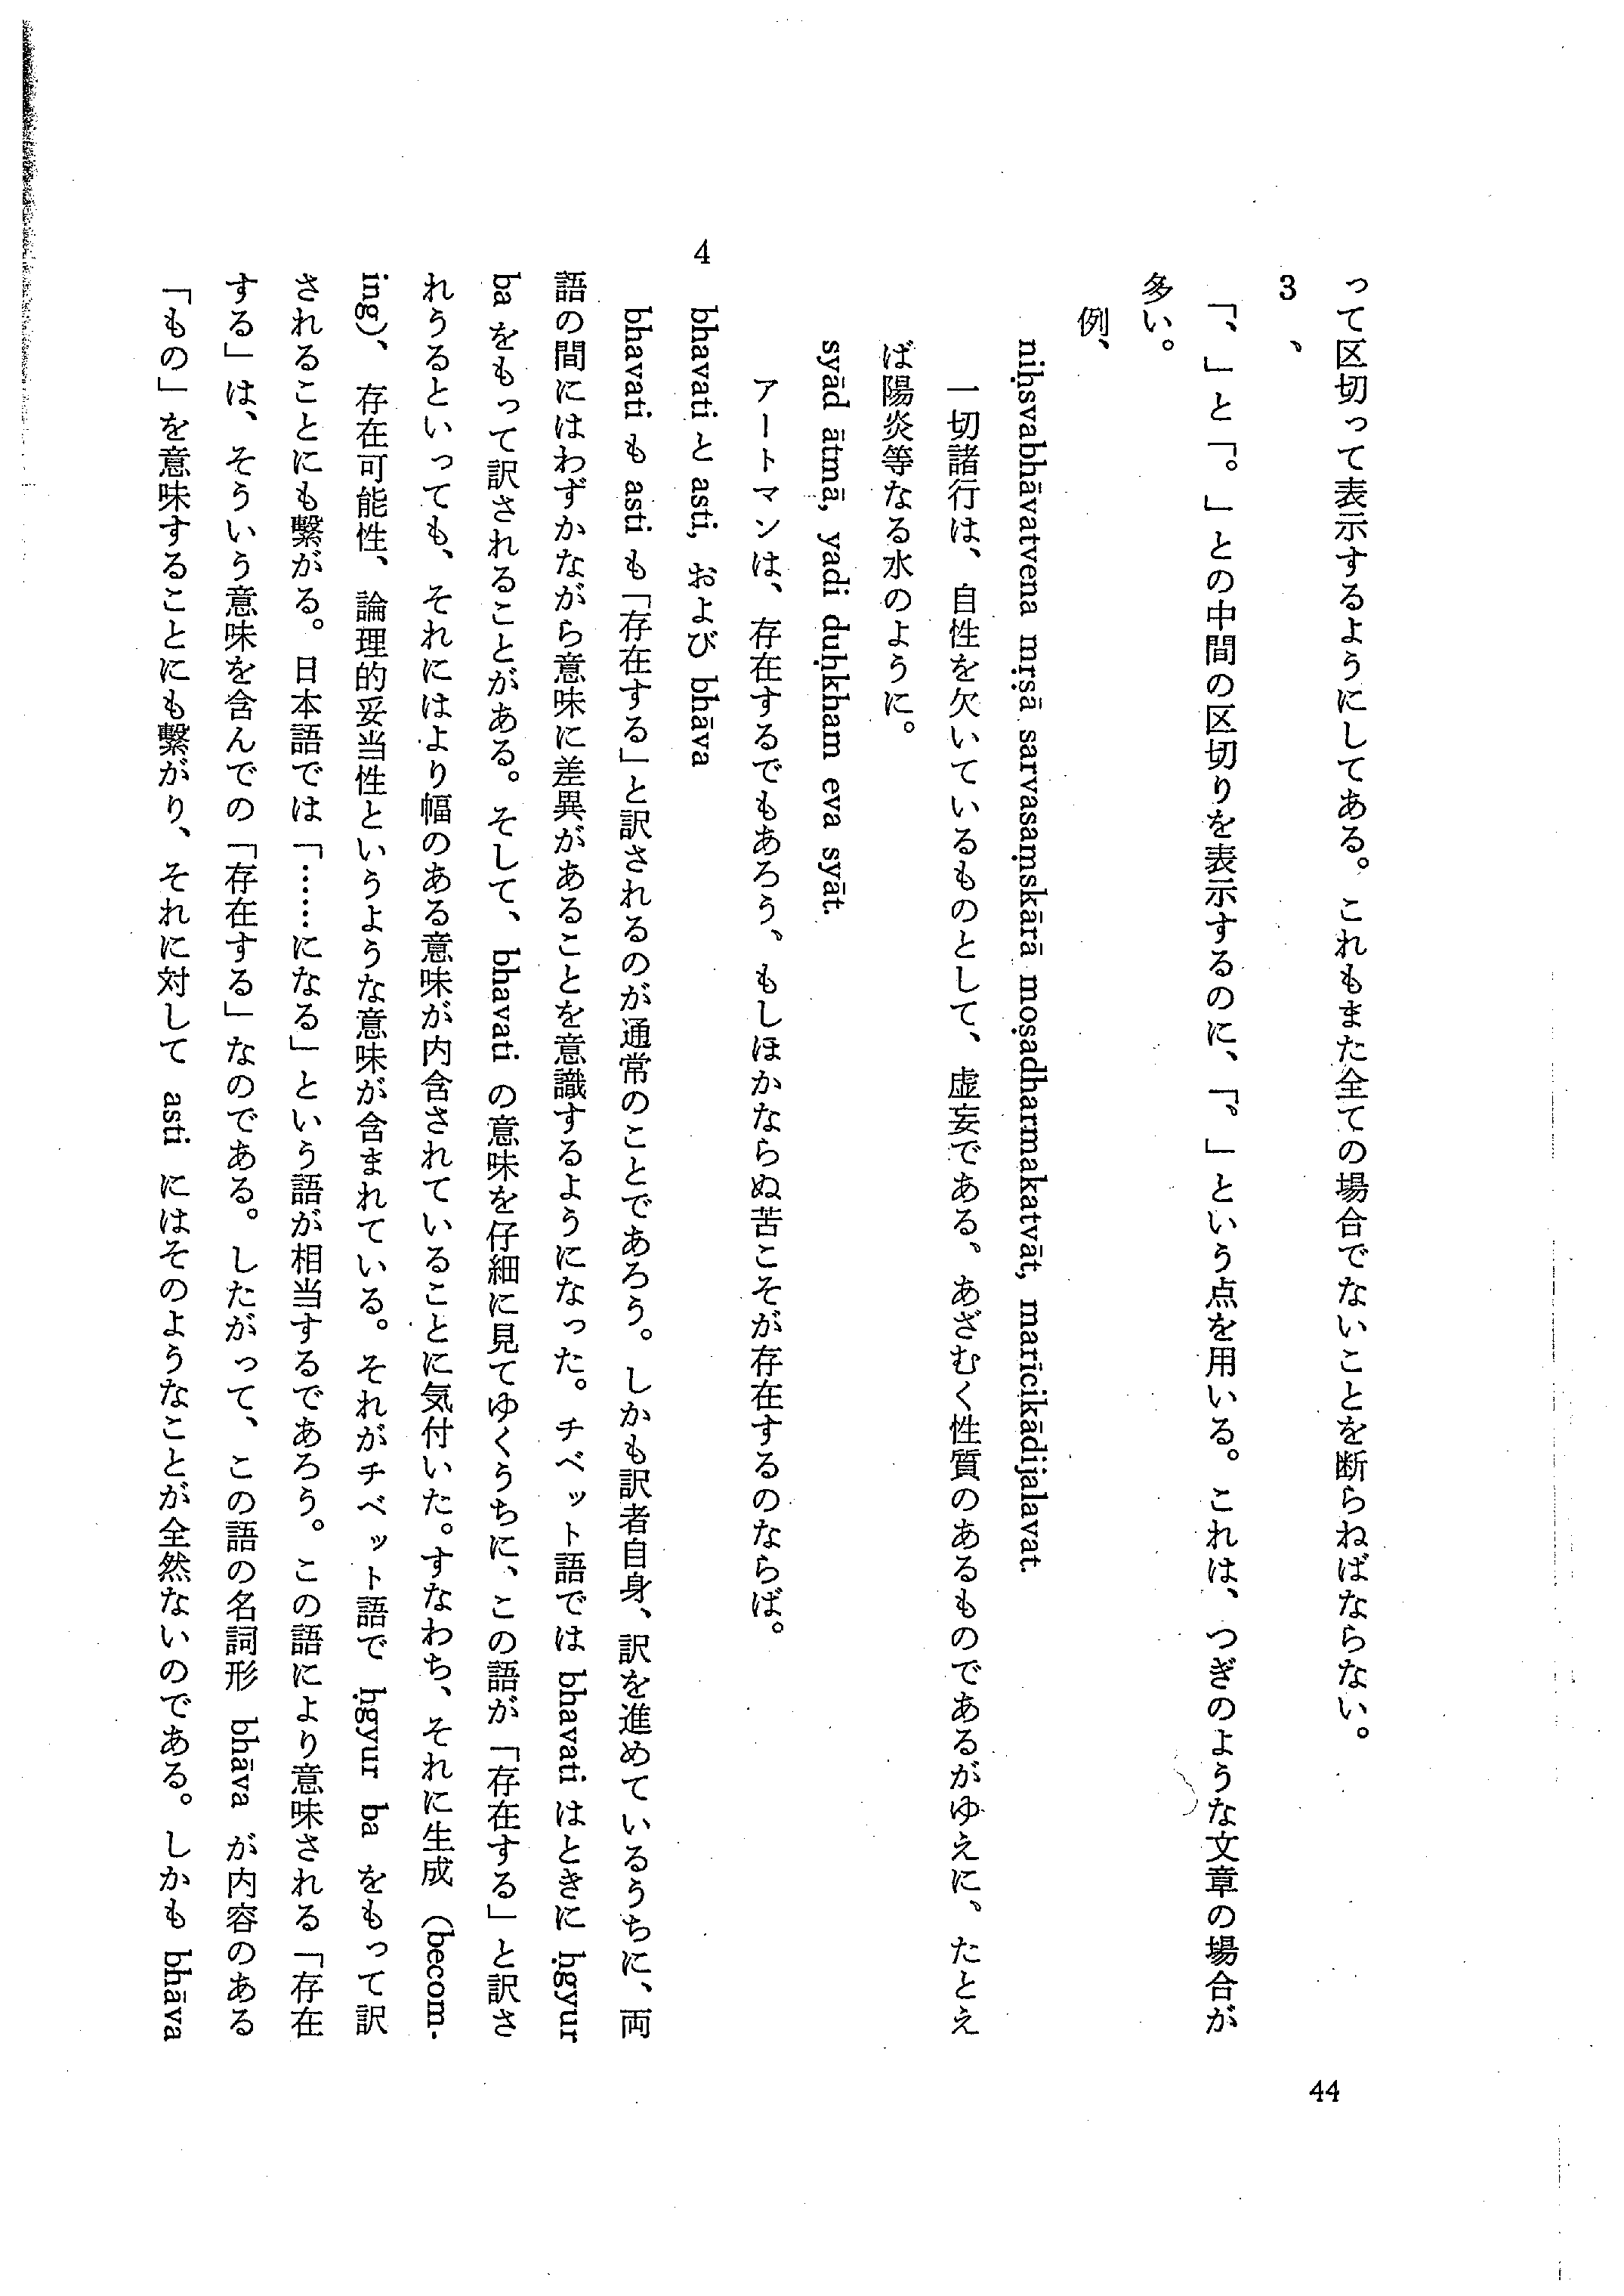 って区切って表示するようにしてある。これもまた全ての場合でないことを断らねばならない。
3 、
「、」と「。」との中間の区切りを表示するのに、「。」という点を用いる。これは、つぎのような文章の場合が
多い。
例、
niḥsvabhāvatvena mṛṣā sarvasaṃskārā moṣadharmakatvāt, marīcikādijalavat.
一切諸行は、自性を欠いているものとして、虚妄である、あざむく性質のあるものであるがゆえに、たとえ
ば陽炎等なる水のように。
syād ātmā, yadi duḥkham eva syāt.
アートマンは、存在するでもあろう、もしほかならぬ苦こそが存在するのならば。
4 bhavati と asti, および bhāva
bhavati も asti も「存在する」と訳されるのが通常のことであろう。しかも訳者自身、訳を進めているうちに、両
語の間にはわずかながら意味に差異があることを意識するようになった。チベット語では bhavati はときに ḥgyur
ba をもって訳されることがある。そして、bhavati の意味を仔細に見てゆくうちに、この語が「存在する」と訳さ
れうるといっても、それにはより幅のある意味が内含されていることに気付いた。すなわち、それに生成 (becom-
ing)、存在可能性、論理的妥当性というような意味が含まれている。それがチベット語で ḥgyur ba をもって訳
されることにも繫がる。日本語では「……になる」という語が相当するであろう。この語により意味される「存在
する」は、そういう意味を含んでの「存在する」なのである。したがって、この語の名詞形 bhāva が内容のある
「もの」を意味することにも繫がり、それに対して asti にはそのようなことが全然ないのである。しかも bhāva
44